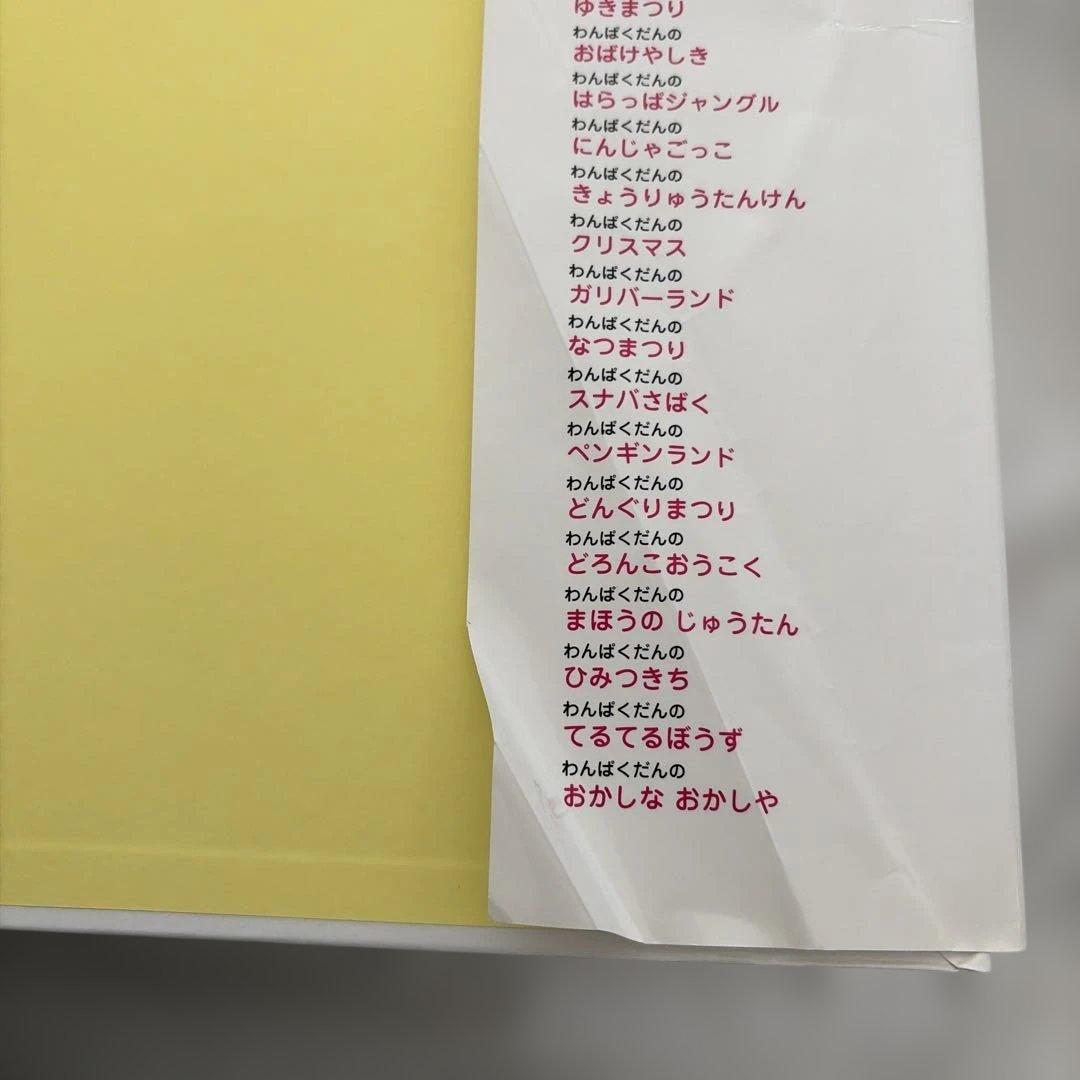 ゆきまつり
わんぱくだんの
おばけやしき
わんぱくだんの
はらっぱジャングル
わんぱくだんの
にんじゃごっこ
わんぱくだんの
きょうりゅうたんけん
わんぱくだんの
クリスマス
わんぱくだんの
ガリバーランド
わんぱくだんの
なつまつり
わんぱくだんの
スナバさばく
わんぱくだんの
ペンギンランド
わんぱくだんの
どんぐりまつり
わんぱくだんの
どろんこおうこく
わんぱくだんの
まほうの じゅうたん
わんぱくだんの
ひみつきち
わんぱくだんの
てるてるぼうず
わんぱくだんの
おかしな おかしや